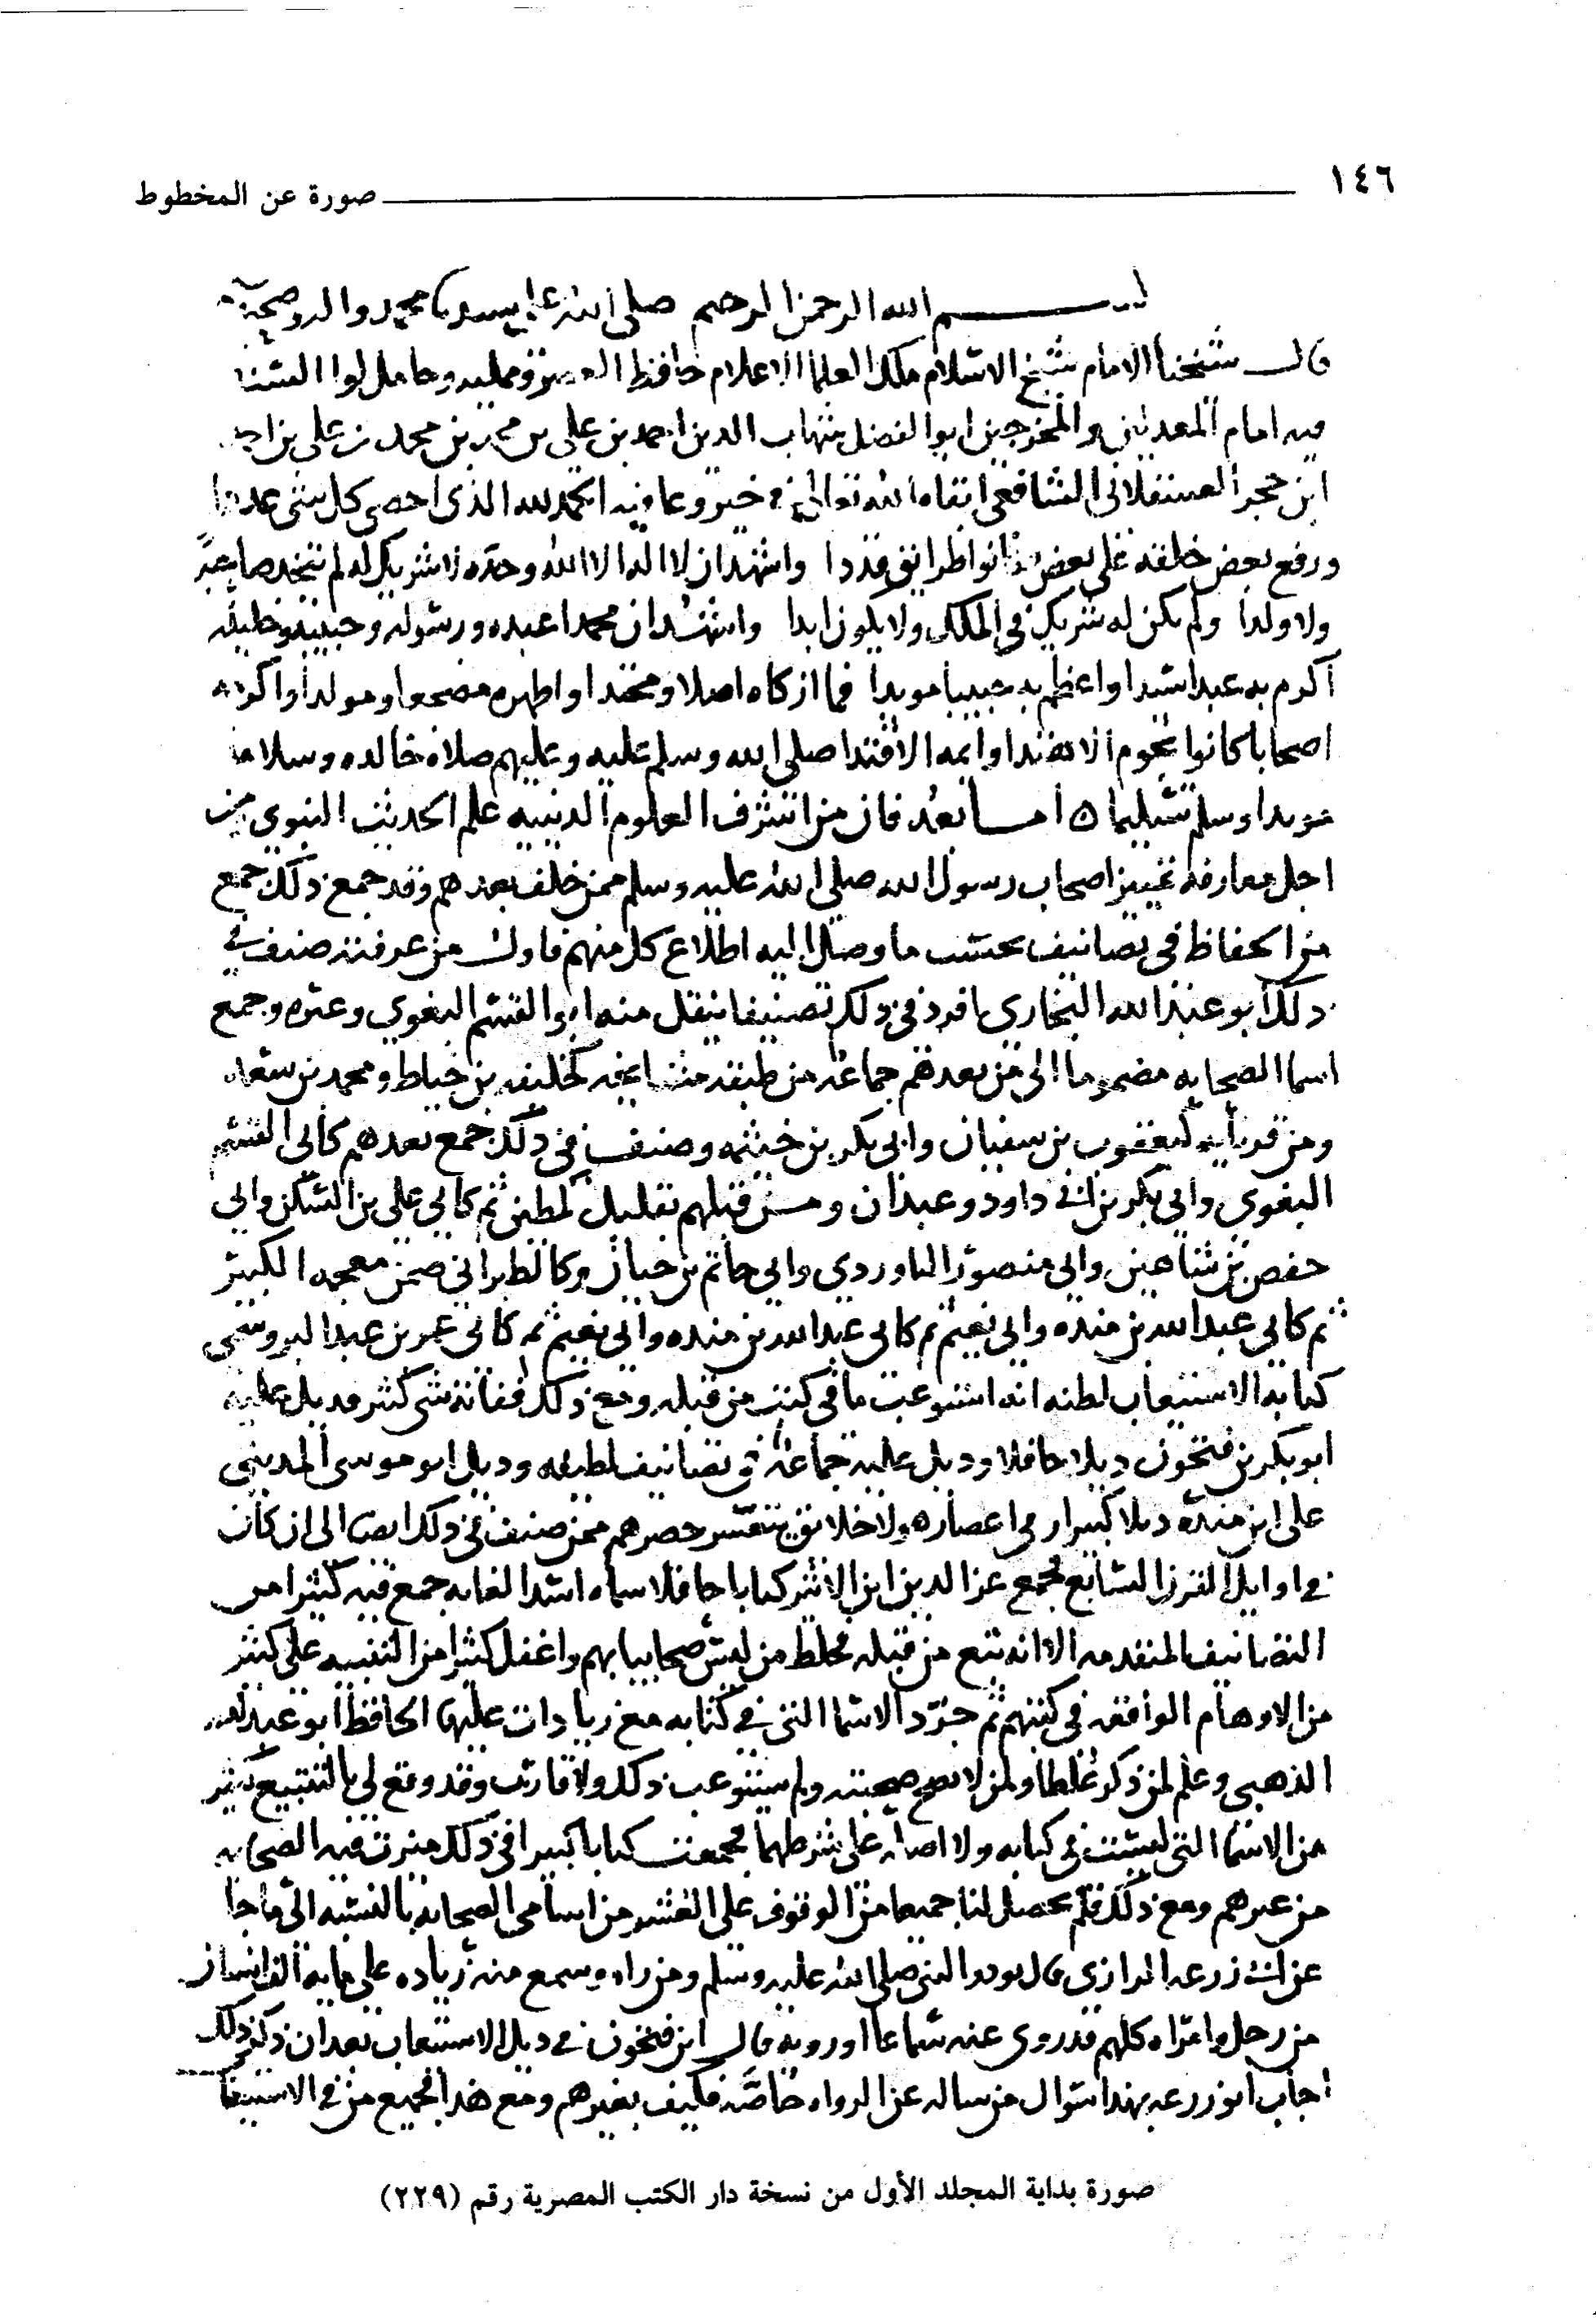 ١٤٦
صورة عن المخطوط
بسم الله الرحمن الرحيم صلى الله على سيدنا محمد واله وصحبه
قال شيخنا الامام شيخ الاسلام ملك العلما الاعلام حافظ العصر وممليه وحامل لوا السنة
فيه امام المعدلين والمخرجين ابو الفضل شهاب الدين احمد بن علي بن محمد بن محمد بن علي بن احمد
ابن حجر العسقلاني الشافعي ابقاه الله تعالى في خير وعافيه الحمد لله الذي احصى كل شي عددا
ورفع بعض خلقه على بعض فكانوا طرايق قددا واشهد ان لا اله الا الله وحده لا شريك له لم يتخذ صاحبة
ولا ولدا ولم يكن له شريك في الملك ولا يكون ابدا واشهد ان محمدا عبده ورسوله وحبيبه وخليله
اكرم به عبدا سيدا واعظم به حبيبا مويدا فما ازكاه اصلا ومحتدا واطهره مضجعا ومولدا واكرمه
اصحابا كانوا نجوم الاهتدا وايمه الاقتدا صلى الله وسلم عليه وعليهم صلاة خالده وسلاما
موبدا وسلم تسليما ٥ أما بعد فان من اشرف العلوم الدينيه علم الحديث النبوي ومن
اجل معارفه تمييز اصحاب رسول الله صلى الله عليه وسلم ممن خلف بعدهم وقد جمع ذلك جمع
من الحفاظ في تصانيف بحسب ما وصل اليه اطلاع كل منهم فاول من عرفته صنف في
ذلك أبو عبد الله البخاري افرد في ذلك تصنيفا ينقل منه ابو القسم البغوي وغيره وجمع
اسما الصحابه مضموما الى من بعدهم جماعة من طبقه مشايخه كخليفه بن خياط ومحمد بن سعد
ومن قرنايه كيعقوب بن سفيان وابي بكر بن خيثمه وصنف في ذلك جمع بعدهم كابي القسم
البغوي وابي بكر بن ابي داود وعبدان ومن قبلهم بقليل كمطين ثم كابي علي بن السكن وابي
حفص بن شاهين وابي منصور الباوردي وابي حاتم بن حبان وكالطبراني ضمن معجمه الكبير
ثم كابي عبد الله بن منده وابي نعيم ثم كابي عبد الله بن منده وابي نعيم ثم كابي عمر بن عبد البر وسمى
كتابه الاستيعاب لظنه انه استوعب ما في كتب من قبله ومع ذلك ففاته شي كثير فذيل عليه
ابو بكر بن فتحون ذيلا حافلا وذيل عليه جماعة في تصانيف لطيفه وذيل ابو موسى المديني
على ابن منده ذيلا كبيرا وفي اعصار هولا خلايق يتعسر حصرهم ممن صنف في ذلك ايضا الى ان كان
في اوايل القرن السابع فجمع عز الدين ابن الاثير كتابا حافلا سماه اسد الغابه جمع فيه كثيرا من
التصانيف المتقدمه الا انه تبع من قبله فخلط من ليس صحابيا بهم واغفل كثيرا من التنبيه على كثير
من الاوهام الواقعه في كتبهم ثم جرّد الاسما التي في كتابه مع زيادات عليها الحافظ ابو عبد الله
الذهبي وعلم لمن ذكر غلطا ولمن لا تصح صحبته ولم يستوعب ذلك ولا قارب وقد وقع لي بالتتبع كثير
من الاسما التي ليست في كتابه ولا اصله على شرطهما فجمعت كتابا كبيرا في ذلك ميزت فيه الصحابه
من غيرهم ومع ذلك فلم يحصل لنا جميعا من الوقوف على العشر من اسامي الصحابه بالنسبه الى ما جا
عن ابي زرعه الرازي قال توفي النبي صلى الله عليه وسلم ومن راه وسمع منه زياده على مايه الف انسان
من رجل وامراه كلهم قد روى عنه سماعا او رويه قال ابن فتحون في ذيل الاستيعاب بعد ان ذكر ذلك
اجاب ابو زرعه بهذا سوال من ساله عن الرواه خاصه فكيف بغيرهم ومع هذا فجميع من في الاستيعاب
صورة بداية المجلد الأول من نسخة دار الكتب المصرية رقم (٢٢٩)